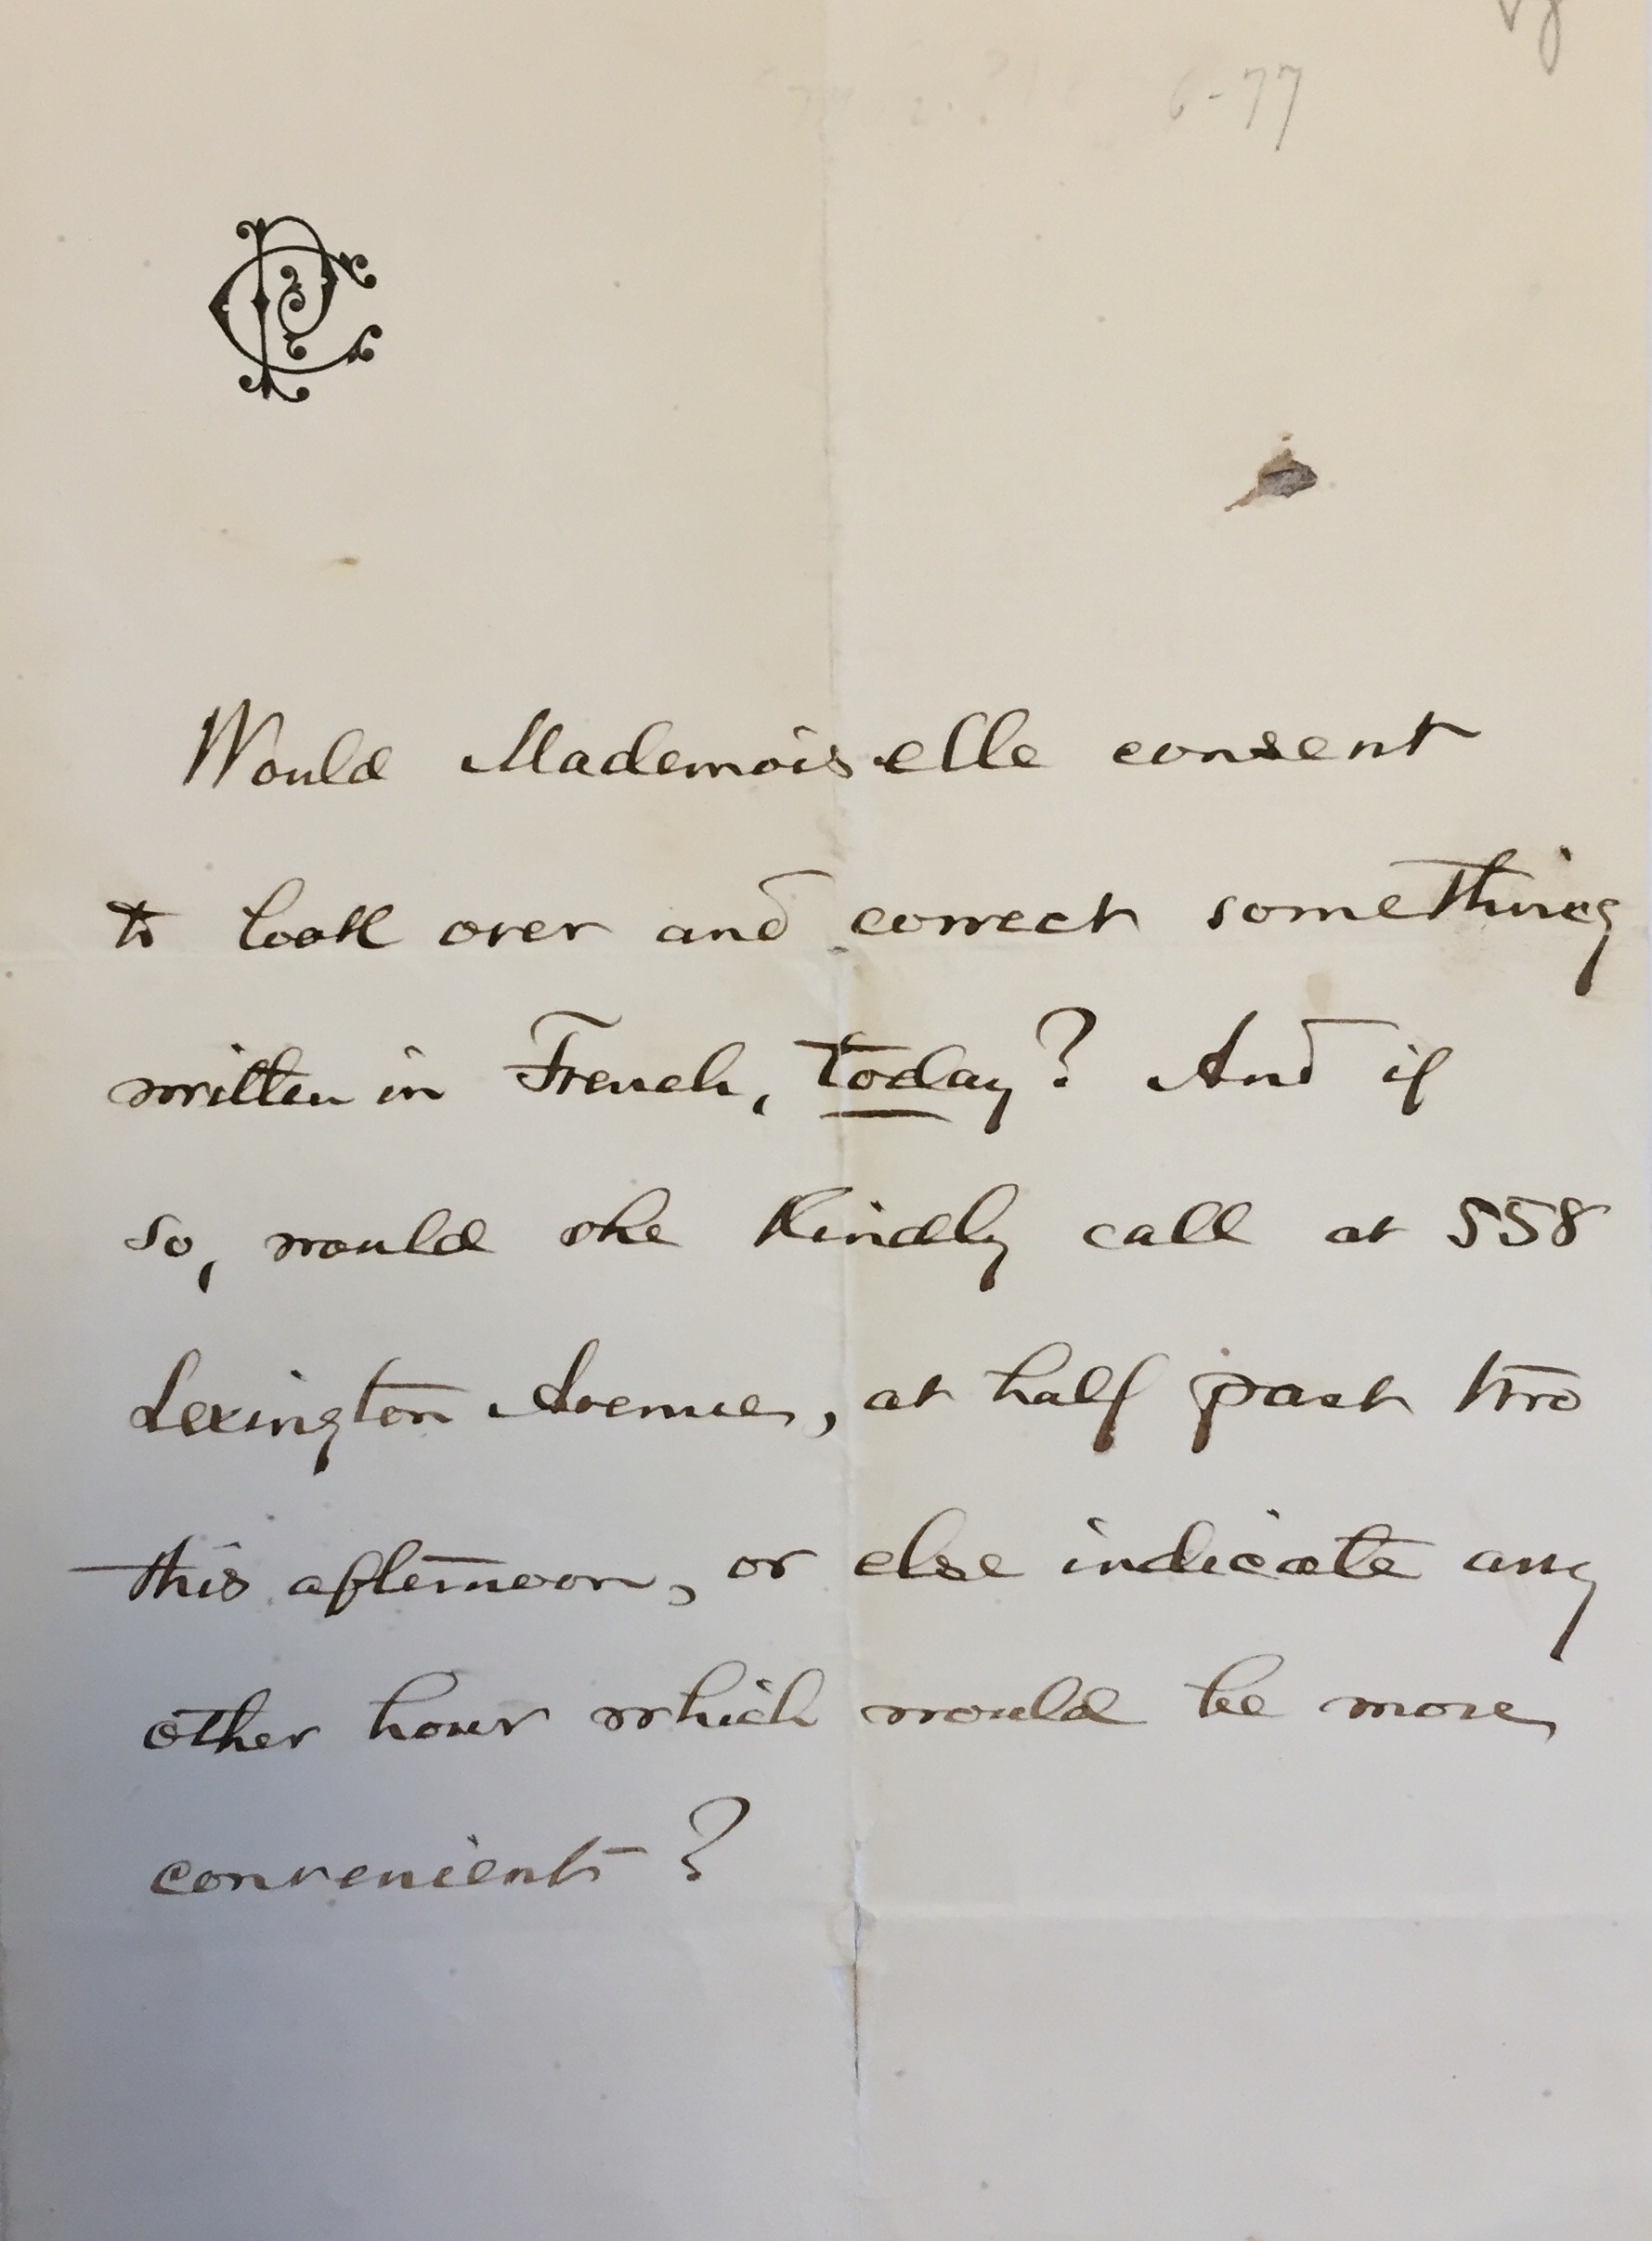 6-77
Would Mademoiselle consent
to look over and correct something
written in French, today? And if
so, would she kindly call at 558
Lexington Avenue, at half past two
this afternoon, or else indicate any
other hour which would be more
convenient?